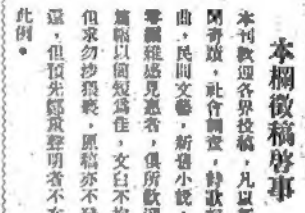 本欄徵稿啓事
本刊歡迎各界投稿，凡以新
聞奇蹟，社會調查，詩歌
曲，民間文藝，新舊小說，
零星雜感見惠者，俱所歡迎
篇幅以簡短爲佳，文白不
但求勿抄襲，原稿亦不
還，但預先鄭重聲明者不在
此例。